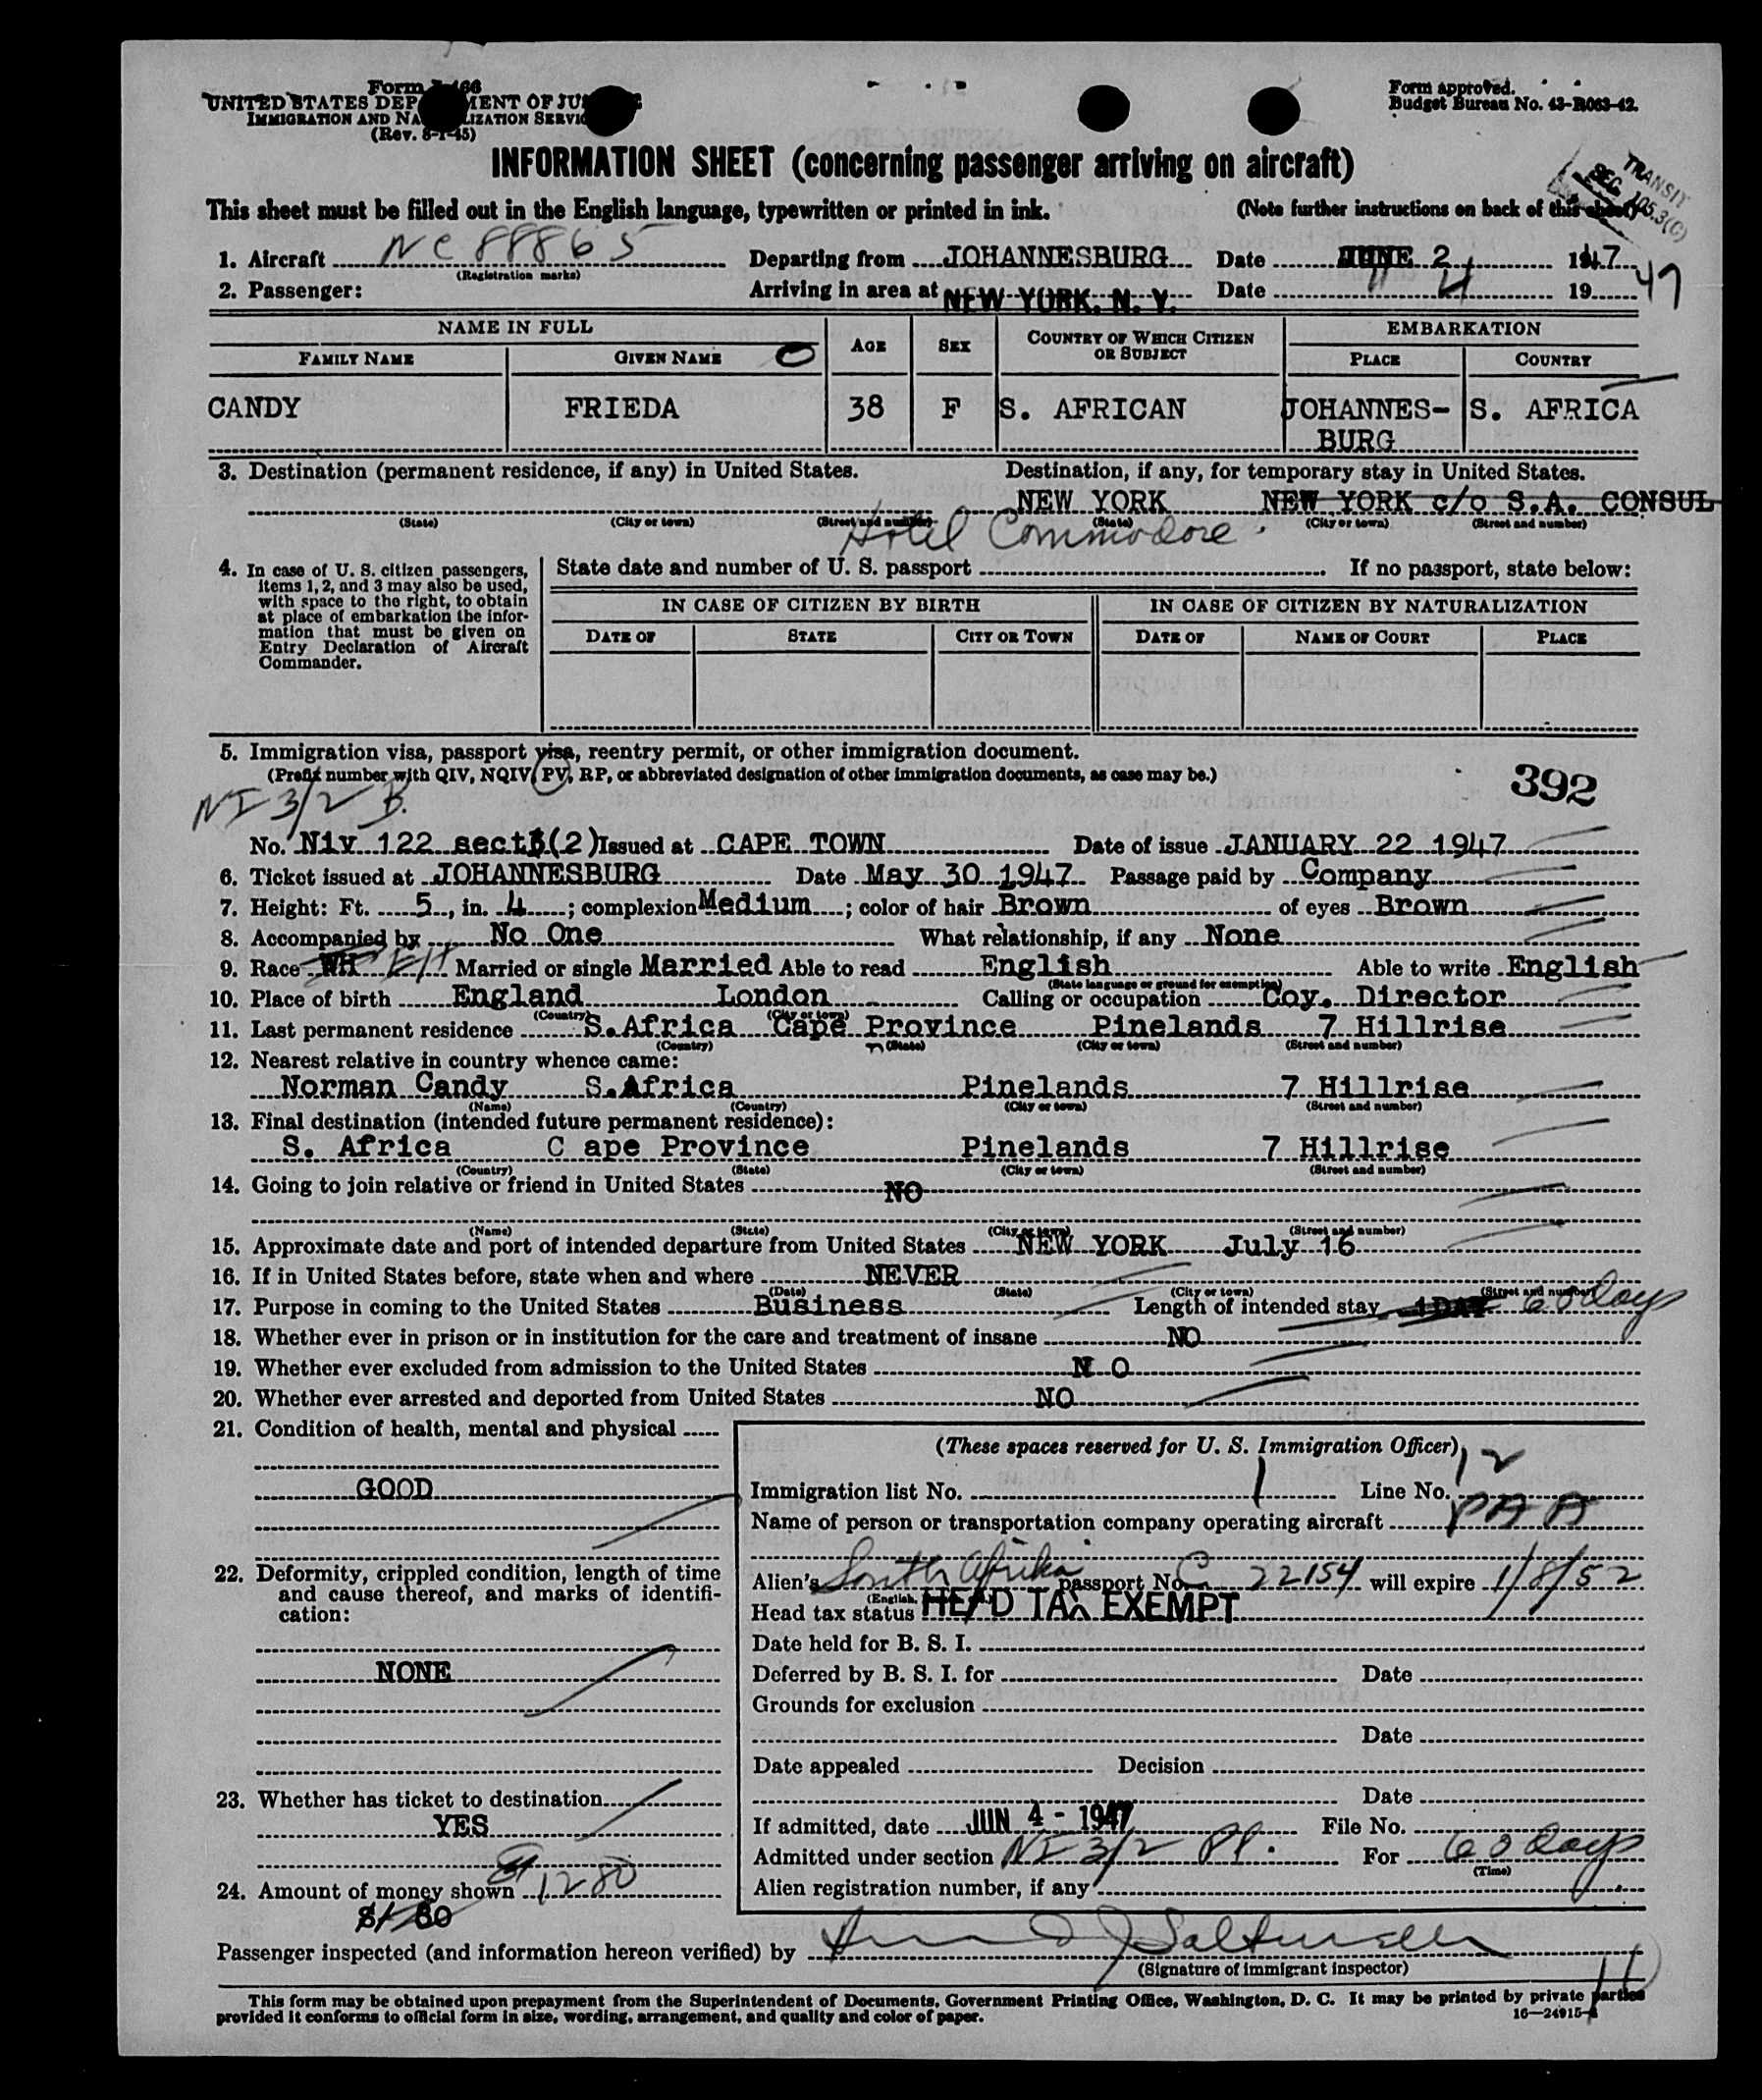 Form I-466
UNITED STATES DEPARTMENT OF JUSTICE
IMMIGRATION AND NATURALIZATION SERVICE
(Rev. 8-1-45)
Form approved.
Budget Bureau No. 43-R063-42.
INFORMATION SHEET (concerning passenger arriving on aircraft)
TRANSIT
SEC. 105.3(G)
This sheet must be filled out in the English language, typewritten or printed in ink. (Note further instructions on back of this sheet)
1. Aircraft NC 88865 Departing from JOHANNESBURG Date JUNE 2 1947
(Registration marks)
2. Passenger: Arriving in area at NEW YORK, N. Y. Date " 4 1947
NAME IN FULL AGE SEX COUNTRY OF WHICH CITIZEN OR SUBJECT EMBARKATION
FAMILY NAME GIVEN NAME PLACE COUNTRY
CANDY FRIEDA 38 F S. AFRICAN JOHANNES- S. AFRICA
BURG
3. Destination (permanent residence, if any) in United States. Destination, if any, for temporary stay in United States.
NEW YORK NEW YORK c/o S.A. CONSUL
(State) (City or town) (Street and number) (State) (City or town) (Street and number)
Hotel Commodore
4. In case of U. S. citizen passengers, items 1, 2, and 3 may also be used, with space to the right, to obtain at place of embarkation the information that must be given on Entry Declaration of Aircraft Commander.
State date and number of U. S. passport If no passport, state below:
IN CASE OF CITIZEN BY BIRTH IN CASE OF CITIZEN BY NATURALIZATION
DATE OF STATE CITY OR TOWN DATE OF NAME OF COURT PLACE
5. Immigration visa, passport visa, reentry permit, or other immigration document.
(Prefix number with QIV, NQIV, PV, RP, or abbreviated designation of other immigration documents, as case may be.)
392
NI 3/2 B.
No. Niv 122 sect3(2) Issued at CAPE TOWN Date of issue JANUARY 22 1947
6. Ticket issued at JOHANNESBURG Date May 30 1947 Passage paid by Company
7. Height: Ft. 5, in. 4; complexion Medium; color of hair Brown of eyes Brown
8. Accompanied by No One What relationship, if any None
9. Race WH Married or single Married Able to read English Able to write English
(State language or ground for exemption)
10. Place of birth England London Calling or occupation Coy. Director
(Country) (City or town)
11. Last permanent residence S.Africa Cape Province Pinelands 7 Hillrise
(Country) (State) (City or town) (Street and number)
12. Nearest relative in country whence came:
Norman Candy S.Africa Pinelands 7 Hillrise
(Name) (Country) (City or town) (Street and number)
13. Final destination (intended future permanent residence):
S. Africa C ape Province Pinelands 7 Hillrise
(Country) (State) (City or town) (Street and number)
14. Going to join relative or friend in United States NO
(Name) (State) (City or town) (Street and number)
15. Approximate date and port of intended departure from United States NEW YORK July 16
16. If in United States before, state when and where NEVER
(Date) (State) (City or town) (Street and number)
17. Purpose in coming to the United States Business Length of intended stay 1DAY 60 days
18. Whether ever in prison or in institution for the care and treatment of insane NO
19. Whether ever excluded from admission to the United States N O
20. Whether ever arrested and deported from United States NO
21. Condition of health, mental and physical
GOOD
22. Deformity, crippled condition, length of time and cause thereof, and marks of identification:
NONE
23. Whether has ticket to destination
YES
24. Amount of money shown 1280
(These spaces reserved for U. S. Immigration Officer)
Immigration list No. 1 Line No. 12
Name of person or transportation company operating aircraft PAA
Alien's South Afrika passport No. C 22154 will expire 1/8/52
Head tax status HEAD TAX EXEMPT
Date held for B. S. I.
Deferred by B. S. I. for Date
Grounds for exclusion
Date
Date appealed Decision
Date
If admitted, date JUN 4 - 1947 File No.
Admitted under section NI 3/2 Pl. For 60 days
(Time)
Alien registration number, if any
Passenger inspected (and information hereon verified) by
(Signature of immigrant inspector)
This form may be obtained upon prepayment from the Superintendent of Documents, Government Printing Office, Washington, D. C. It may be printed by private parties
provided it conforms to official form in size, wording, arrangement, and quality and color of paper. 16—24915-1